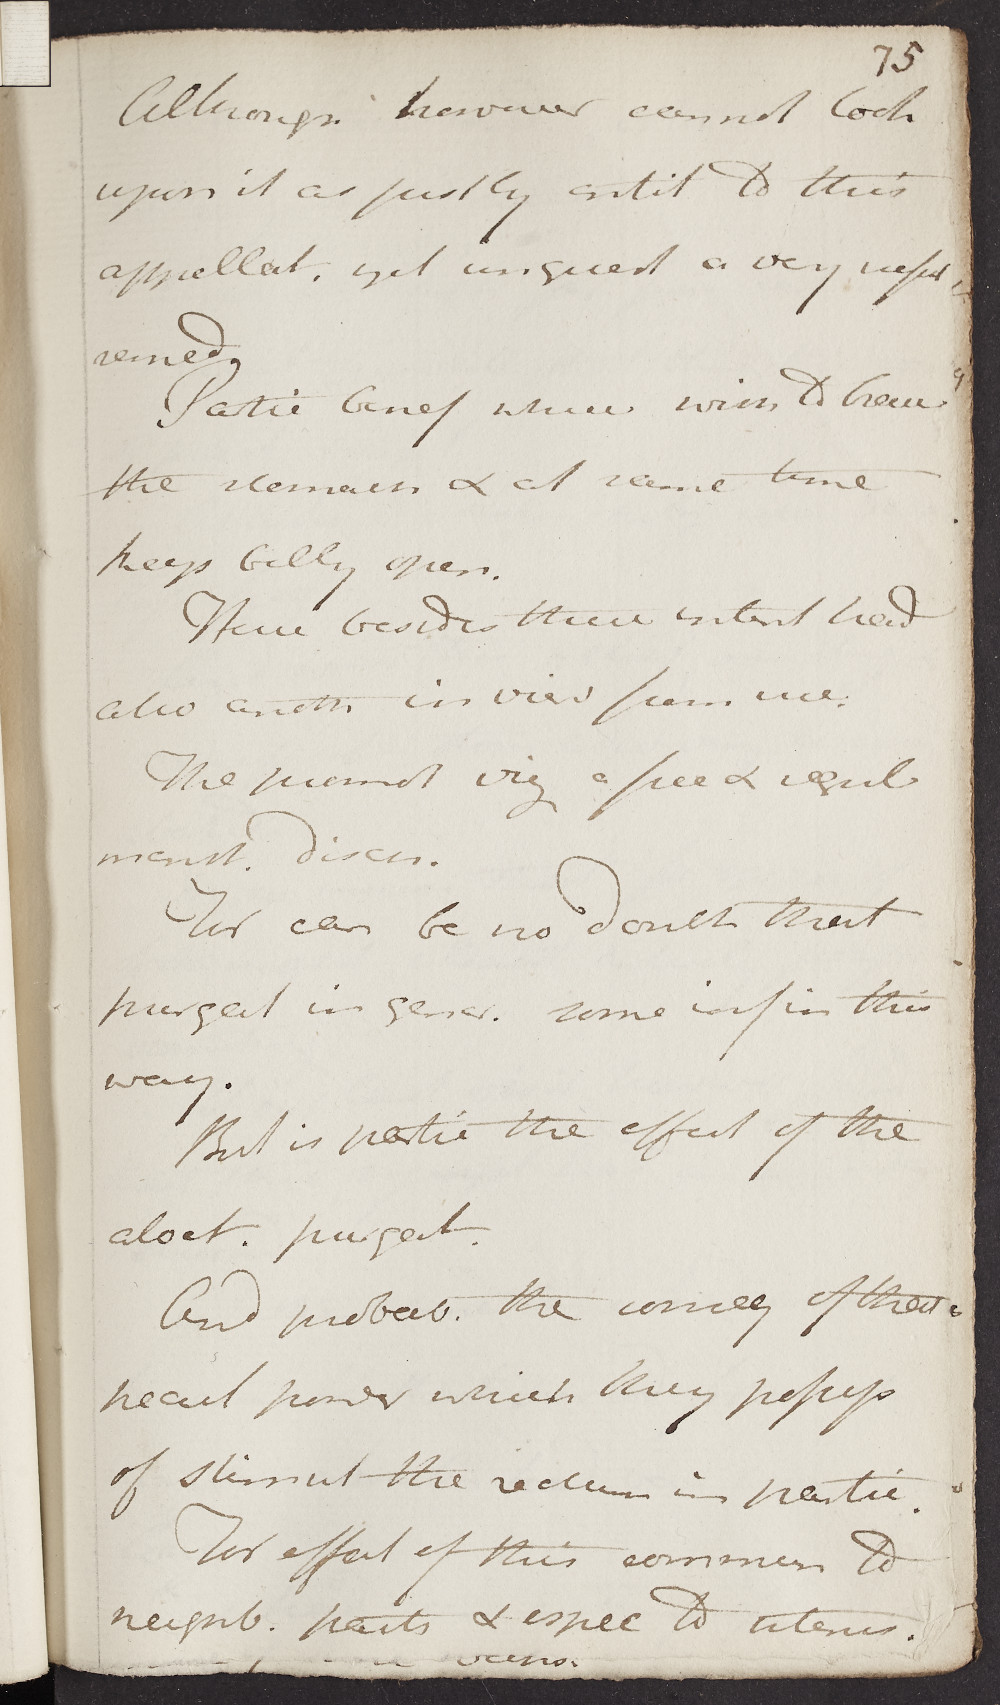 75
Although however cannot look
upon it as justly entit to this
appellat. yet unquest a very useful
remedy
Partic benef where wish to brace
the stomach & at same time
keep belly open.
Here besides these intent had
also anoth in view from use.
The promot viz a free & regul
menst. disch.
Ther can be no doubt that
purgat in gener. some inf in this
way.
But is partic the effect of the
aloet. purgat.
And probab. the conseq of that
pecul power which they possess
of stimul the rectum in partic.
Ther effect of this commun to
neighb. parts & espec to uterus.